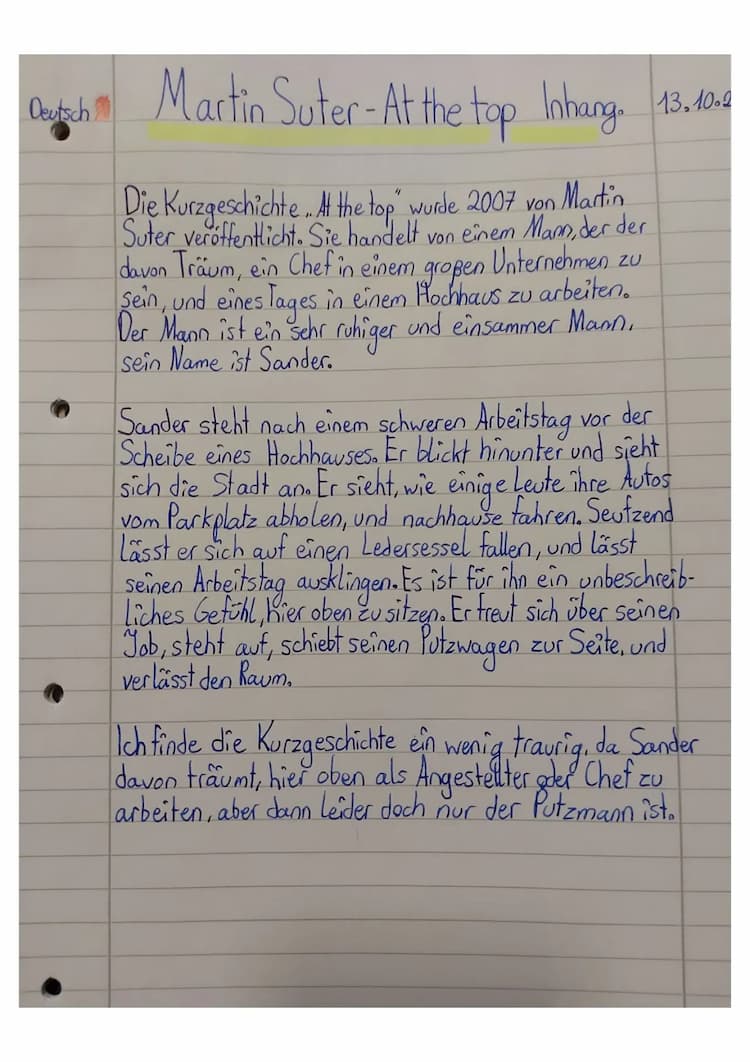 Deutsch Martin Suter - At the top Inhang. 13.10.2
Die Kurzgeschichte „At the top" wurde 2007 von Martin
Suter veröffentlicht. Sie handelt von einem Mann, der der
davon Träum, ein Chef in einem großen Unternehmen zu
sein, und eines Tages in einem Hochhaus zu arbeiten.
Der Mann ist ein sehr ruhiger und einsammer Mann,
sein Name ist Sander.
Sander steht nach einem schweren Arbeitstag vor der
Scheibe eines Hochhauses. Er blickt hinunter und sieht
sich die Stadt an. Er sieht, wie einige Leute ihre Autos
vom Parkplatz abholen, und nachhause fahren. Seufzend
lässt er sich auf einen Ledersessel fallen, und lässt
seinen Arbeitstag ausklingen. Es ist für ihn ein unbeschreib-
liches Gefühl, hier oben zu sitzen. Er freut sich über seinen
Job, steht auf, schiebt seinen Putzwagen zur Seite, und
verlässt den Raum.
Ich finde die Kurzgeschichte ein wenig traurig, da Sander
davon träumt, hier oben als Angestellter oder Chef zu
arbeiten, aber dann leider doch nur der Putzmann ist.